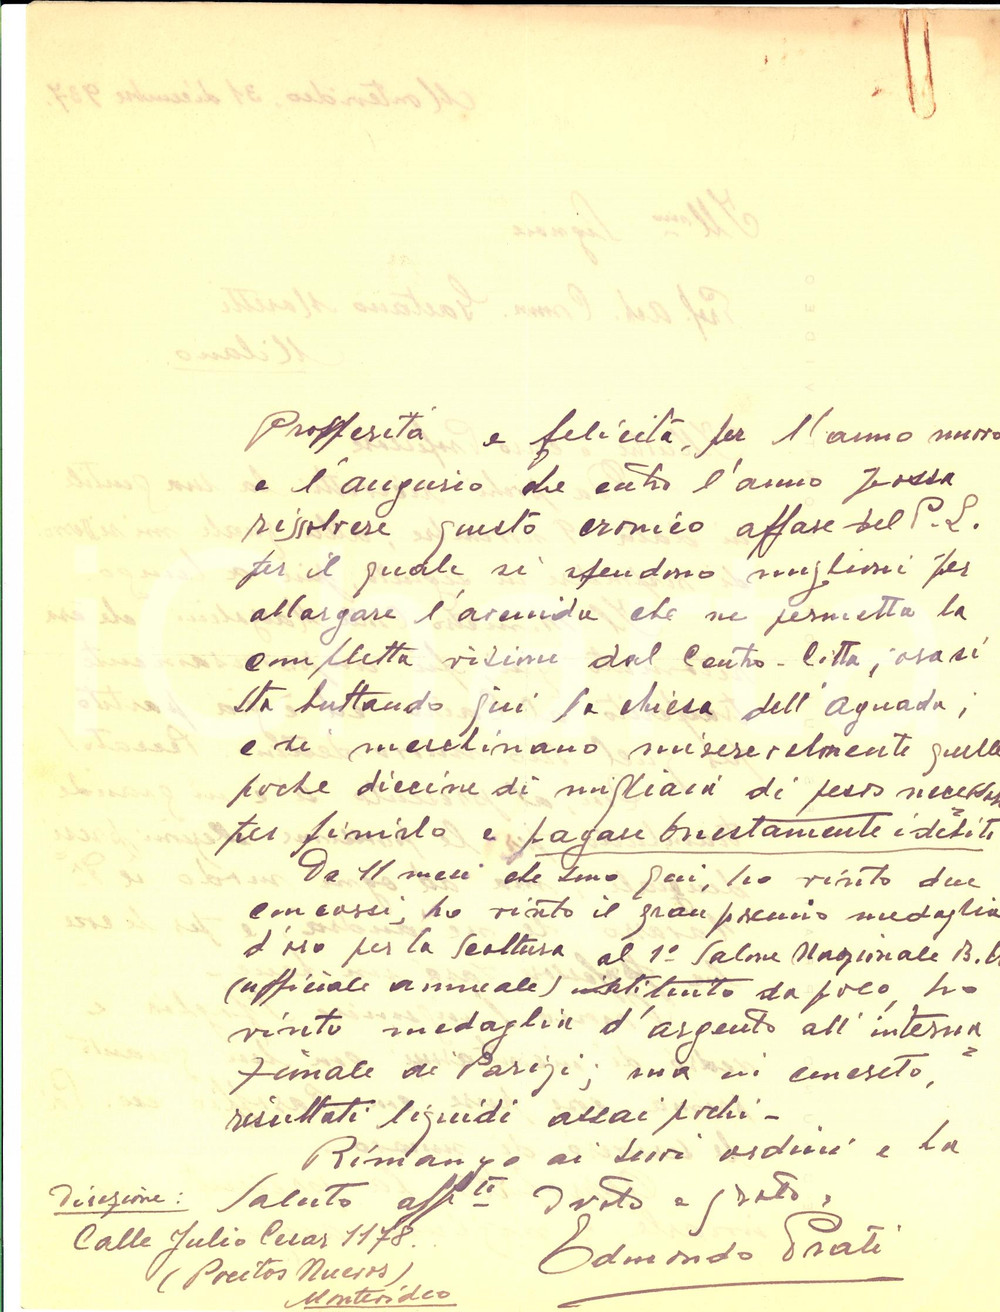 Prosperità e felicità, per l'anno nuovo
e l'augurio che entro l'anno possa
risolvere questo cronico affare del P. L.
per il quale si spendono miglioni per
allargare l'avenida che ne permetta la
completta visione dal Centro-Città, ora si
sta buttando giù la chiesa dell'Aguada;
e si meschinano miserevolmente quelle
poche diecine di migliaia di pesos necessari
per finirlo e pagare onestamente i debiti
Da 11 mesi che sono qui, ho vinto due
concorsi, ho vinto il gran premio medaglia
d'oro per la Scoltura al 1º Salone Nazionale B. A
(ufficiale annuale) istituito da poco, ho
vinto medaglia d'argento all'interna
zionale di Parigi; ma in concreto,
risultati liquidi assai pochi -
Rimango ai suoi ordini e la
Saluto aff.tti
Edmondo Prati
Direzione:
Calle Julio Cesar 1178.
(Pocitos Nuevos)
Montevideo